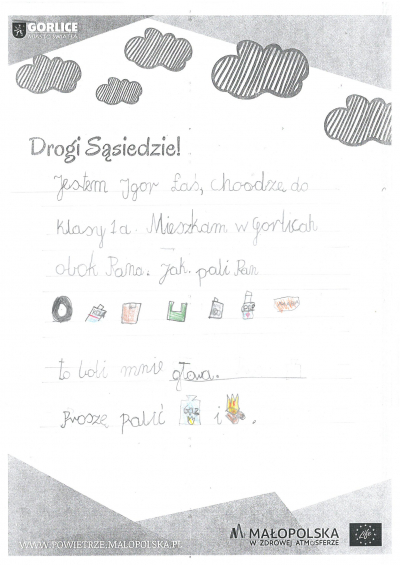 GORLICE
MIASTO ŚWIATŁA
Drogi Sąsiedzie!
Jestem Igor Łaś, choodzę do
klasy 1a. Mieszkam w Gorlicah
obok Pana. Jak pali Pan
to boli mnie głowa.
Prosze palić GAZ i .
WWW.POWIETRZE.MALOPOLSKA.PL
MAŁOPOLSKA
W ZDROWEJ ATMOSFERZE
Life